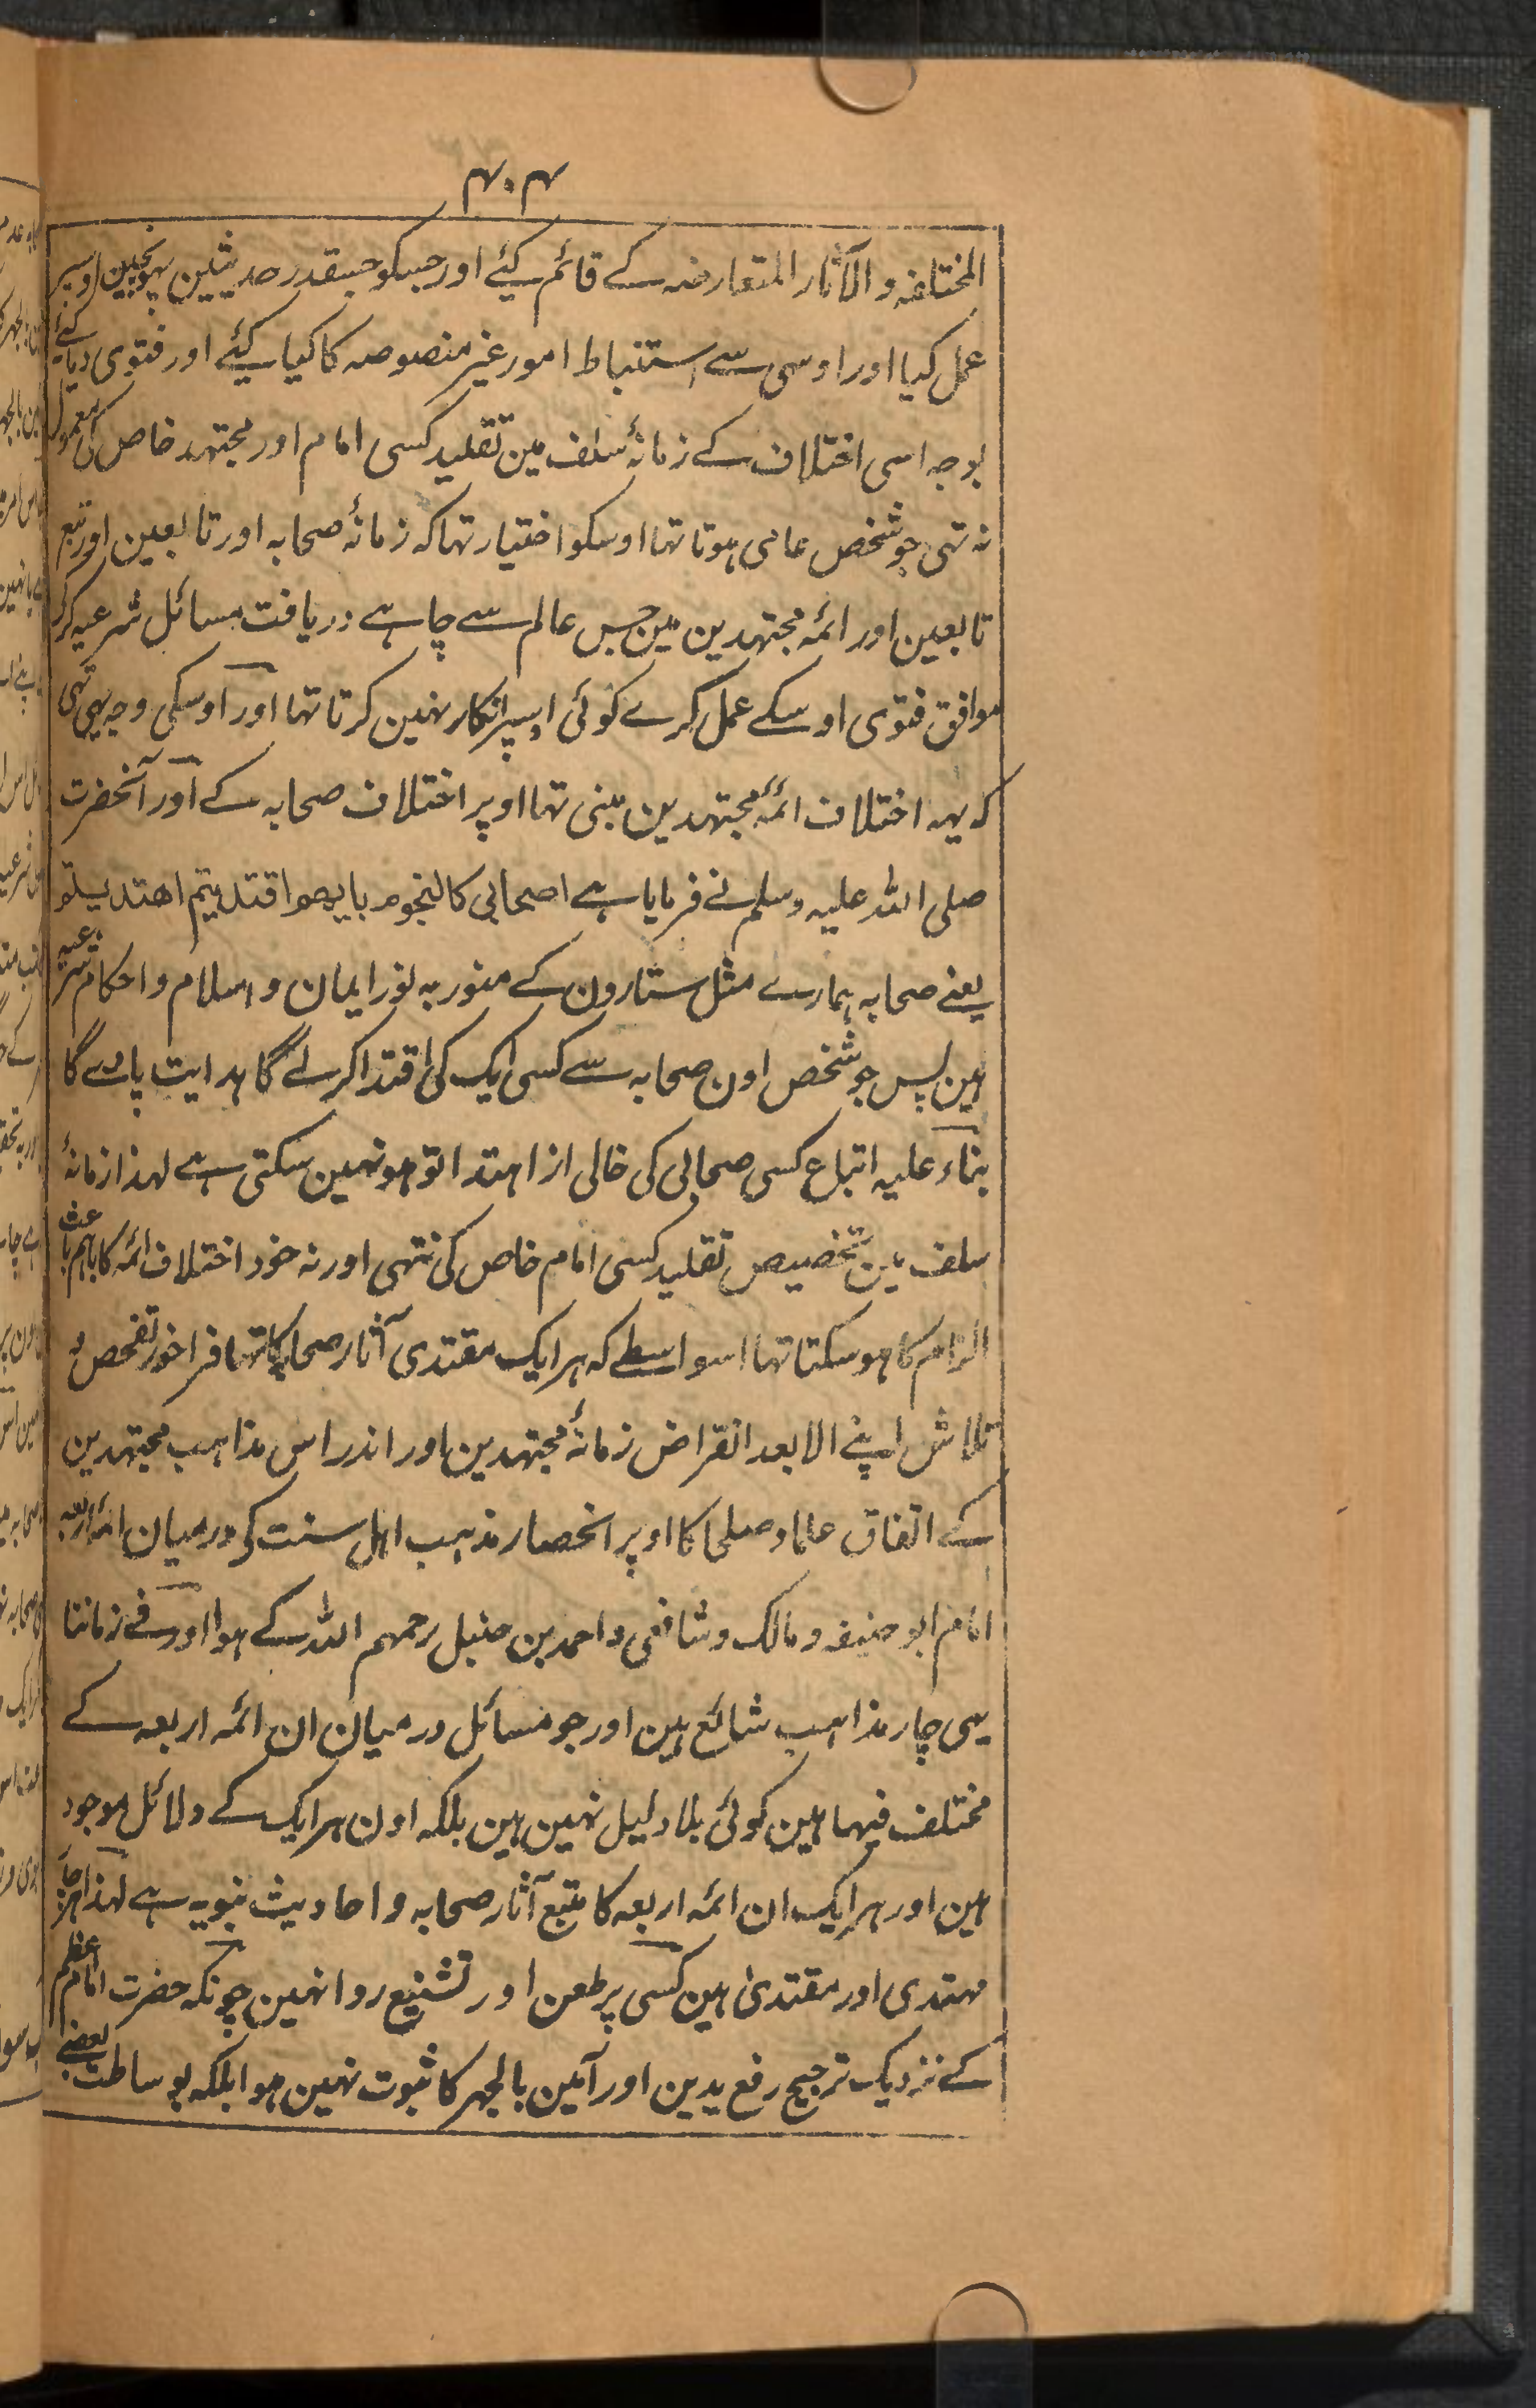 ۴۰۴
المختلفہ والآثار المتعارضہ کے قائم کیئے اور جسکو جسقدر حدیثین پہونچین اوسپر
عمل کیا اور اوسی سے استنباط امور غیر منصوصہ کا کیا کیئے اور فتوی دیا کئے
بوجہ اسی اختلاف کے زمانۂ سلف مین تقلید کسی امام اور مجتہد خاص کی معمول
نہ تہی جو شخص عامی ہوتا تہا اوسکو اختیار تہا کہ زمانۂ صحابہ اور تابعین اور تبع
تابعین اور ائمہ مجتہدین مین جس عالم سے چاہے دریافت مسائل شرعیہ کر کر
موافق فتوی اوسکے عمل کرے کوئی اسپر انکار نہین کرتا تہا اور اوسکی وجہ یہی تہی
کہ یہہ اختلاف ائمۂ مجتہدین مبنی تہا اوپر اختلاف صحابہ کے اور آنحضرت
صلی اللہ علیہ وسلم نے فرمایا ہے اصحابی کالنجوم بایھم اقتدیتم اھتدیتم
یعنے صحابہ ہمارے مثل ستارون کے منور بہ نور ایمان و اسلام و احکام شرعیہ
ہین پس جو شخص اون صحابہ سے کسی ایک کی اقتدا کرلے گا ہدایت پاوے گا
بناء علیہ اتباع کسی صحابی کی خالی از اہتدا تو ہو نہین سکتی ہے لہذا زمانۂ
سلف مین تخصیص تقلید کسی امام خاص کی نتہی اور نہ خود اختلاف ائمہ کا باہم باعث
الزام کا ہو سکتا تہا اسواسطے کہ ہر ایک مقتدی آثار صحابہ کا تہا فراخور تفحص و
تلاش اپنے الا بعد انقراض زمانۂ مجتہدین اور اندراس مذاہب مجتہدین
کے اتفاق علما و صلحا کا اوپر انحصار مذہب اہل سنت کی درمیان ائمہ اربعہ
امام ابو حنیفہ و مالک و شافعی و احمد بن حنبل رحمہم اللہ کے ہوا اور فے زماننا
یہی چار مذاہب شائع ہین اور جو مسائل درمیان ان ائمہ اربعہ کے
مختلف فیہا ہین کوئی بلا دلیل نہین ہین بلکہ اون ہر ایک کے دلائل موجود
ہین اور ہر ایک ان ائمہ اربعہ کا متبع آثار صحابہ و احادیث نبویہ ہے لہذا
مہتدی اور مقتدیٰ ہین کسی پر طعن اور تشنیع روا نہین چونکہ حضرت امام اعظم
کے نزدیک ترجیح رفع یدین اور آمین بالجہر کا ثبوت نہین ہوا بلکہ بوساطت بعضے